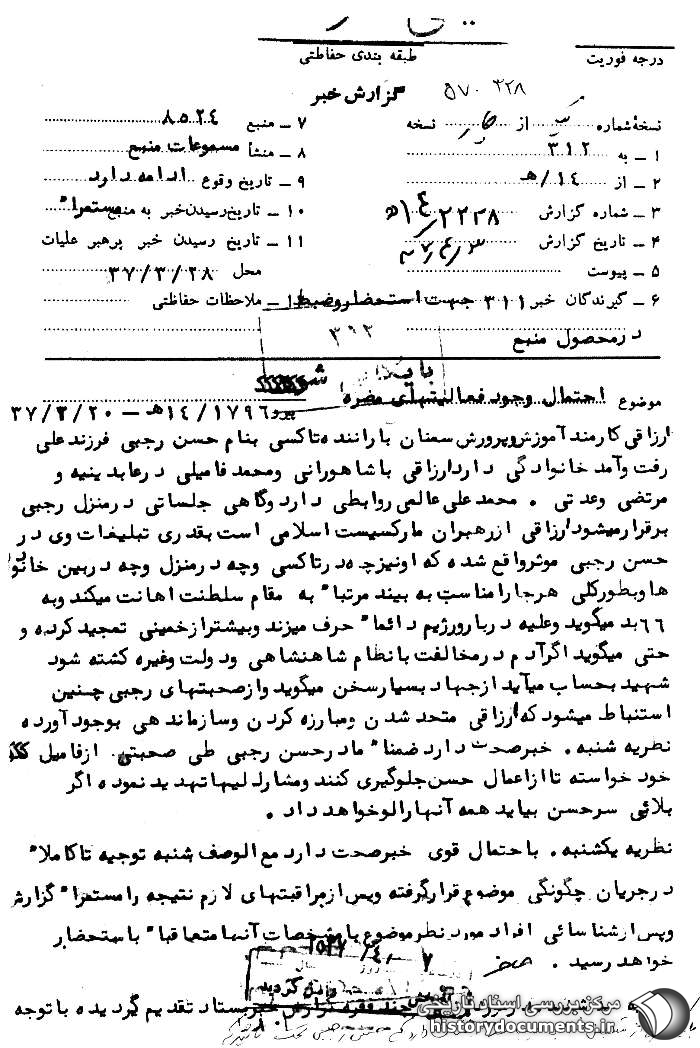 درجه فوریت
طبقه بندی حفاظتی
گزارش خبر
۵۷۰ ۳۲۸
نسخهٔ شماره از نسخه
۱ ـ به ۳۱۲
۲ ـ از ۱۴/هـ
۳ ـ شماره گزارش ۱۴/۲۲۲۸هـ
۴ ـ تاریخ گزارش
۵ ـ پیوست
۶ ـ گیرندگان خبر ۳۱۱ جهت استحضار وضبط
درمحصول منبع
۷ ـ منبع ۸۵۲۴
۸ ـ منشأ مسموعات منبع
۹ ـ تاریخ وقوع ادامه دارد
۱۰ ـ تاریخ رسیدن خبر به منبع مستمرا"
۱۱ ـ تاریخ رسیدن خبر برهبر عملیات
محل ۳۷/۳/۲۸
۱۲ ـ ملاحظات حفاظتی
۳۱۲
بایگانی شود
موضوع احتمال وجود فعالیتهای مضره
پیرو ۱۴/۱۷۹۶هـ ـ ۳۷/۳/۲۰
ارزاقی کارمند آموزش وپرورش سمنان با راننده تاکسی بنام حسن رجبی فرزند علی
رفت وآمد خانوادگی دارد ارزاقی با شاهورانی ومحمد فامیلی در عابدینیه و
مرتضی وعدتی . محمد علی عالمی روابطی دارد وگاهی جلساتی درمنزل رجبی
برقرار میشود ارزاقی ازرهبران مارکسیست اسلامی است بقدری تبلیغات وی در
حسن رجبی موثرواقع شده که اونیزچه درتاکسی وچه درمنزل وچه دربین خانو
ها وبطورکلی هرجا را مناسب به بیند مرتبا" به مقام سلطنت اهانت میکند وبه
۶۶ بد میگوید وعلیه دربار ورژیم دائما" حرف میزند وبیشتر ازخمینی تمجید کرده و
حتی میگوید اگرآدم درمخالفت با نظام شاهنشاهی ودولت وغیره کشته شود
شهید بحساب میآید ازجهاد بسیار سخن میگوید وازصحبتهای رجبی چنین
استنباط میشود که ارزاقی متحد شدن ومبارزه کردن وسازماندهی بوجود آورده
نظریه شنبه . خبرصحت دارد ضمنا" مادرحسن رجبی طی صحبتی ازفامیل
خود خواسته تا ازاعمال حسن جلوگیری کنند ومشارالیها تهدید نموده اگر
بلائی سرحسن بیاید همه آنها رالو خواهد داد .
نظریه یکشنبه . با احتمال قوی خبرصحت دارد مع الوصف شنبه توجیه تا کاملا"
درجریان چگونگی موضوع قرارگرفته وپس ازمراقبتهای لازم نتیجه را مستمرا" گزارش
وپس ازشناسائی افراد مورد نظر موضوع با مشخصات آنها متعاقبا" باستحضار
خواهد رسید .
تقدیم گردیده با توجه
مرکز بررسی اسناد تاریخی
historydocuments.ir